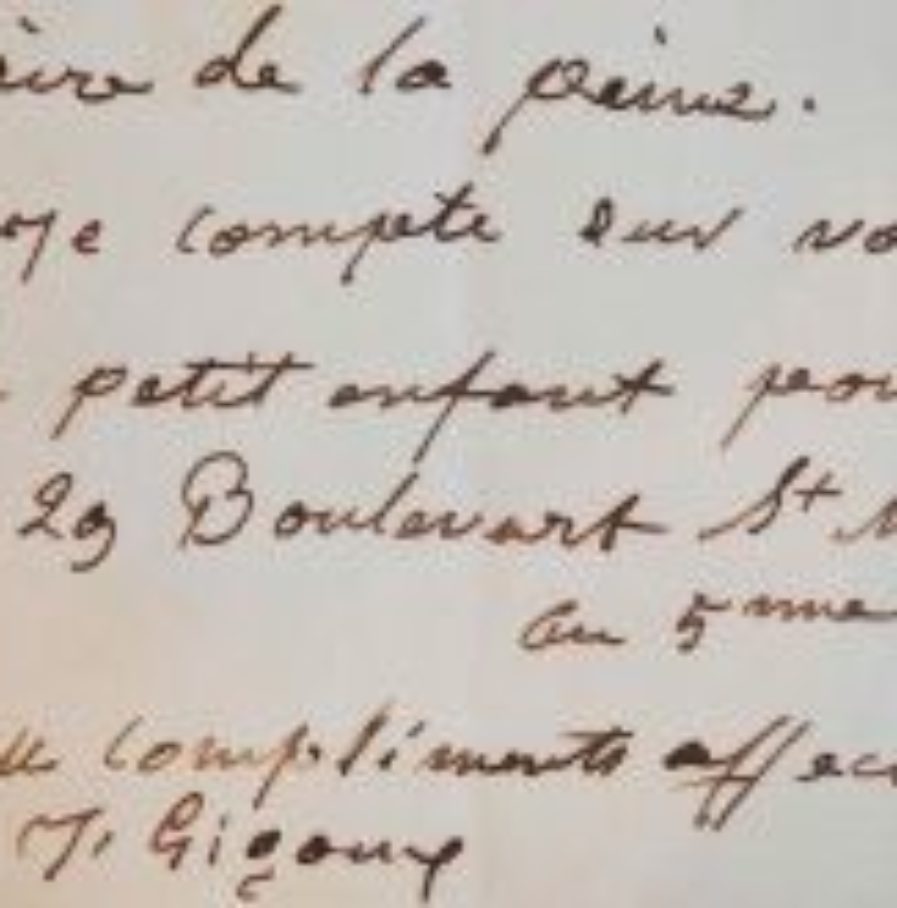 de la peine.
Je compte sur vo
petit enfant pou
29 Boulevart St
au 5me
compliments affec
J. Gigoux